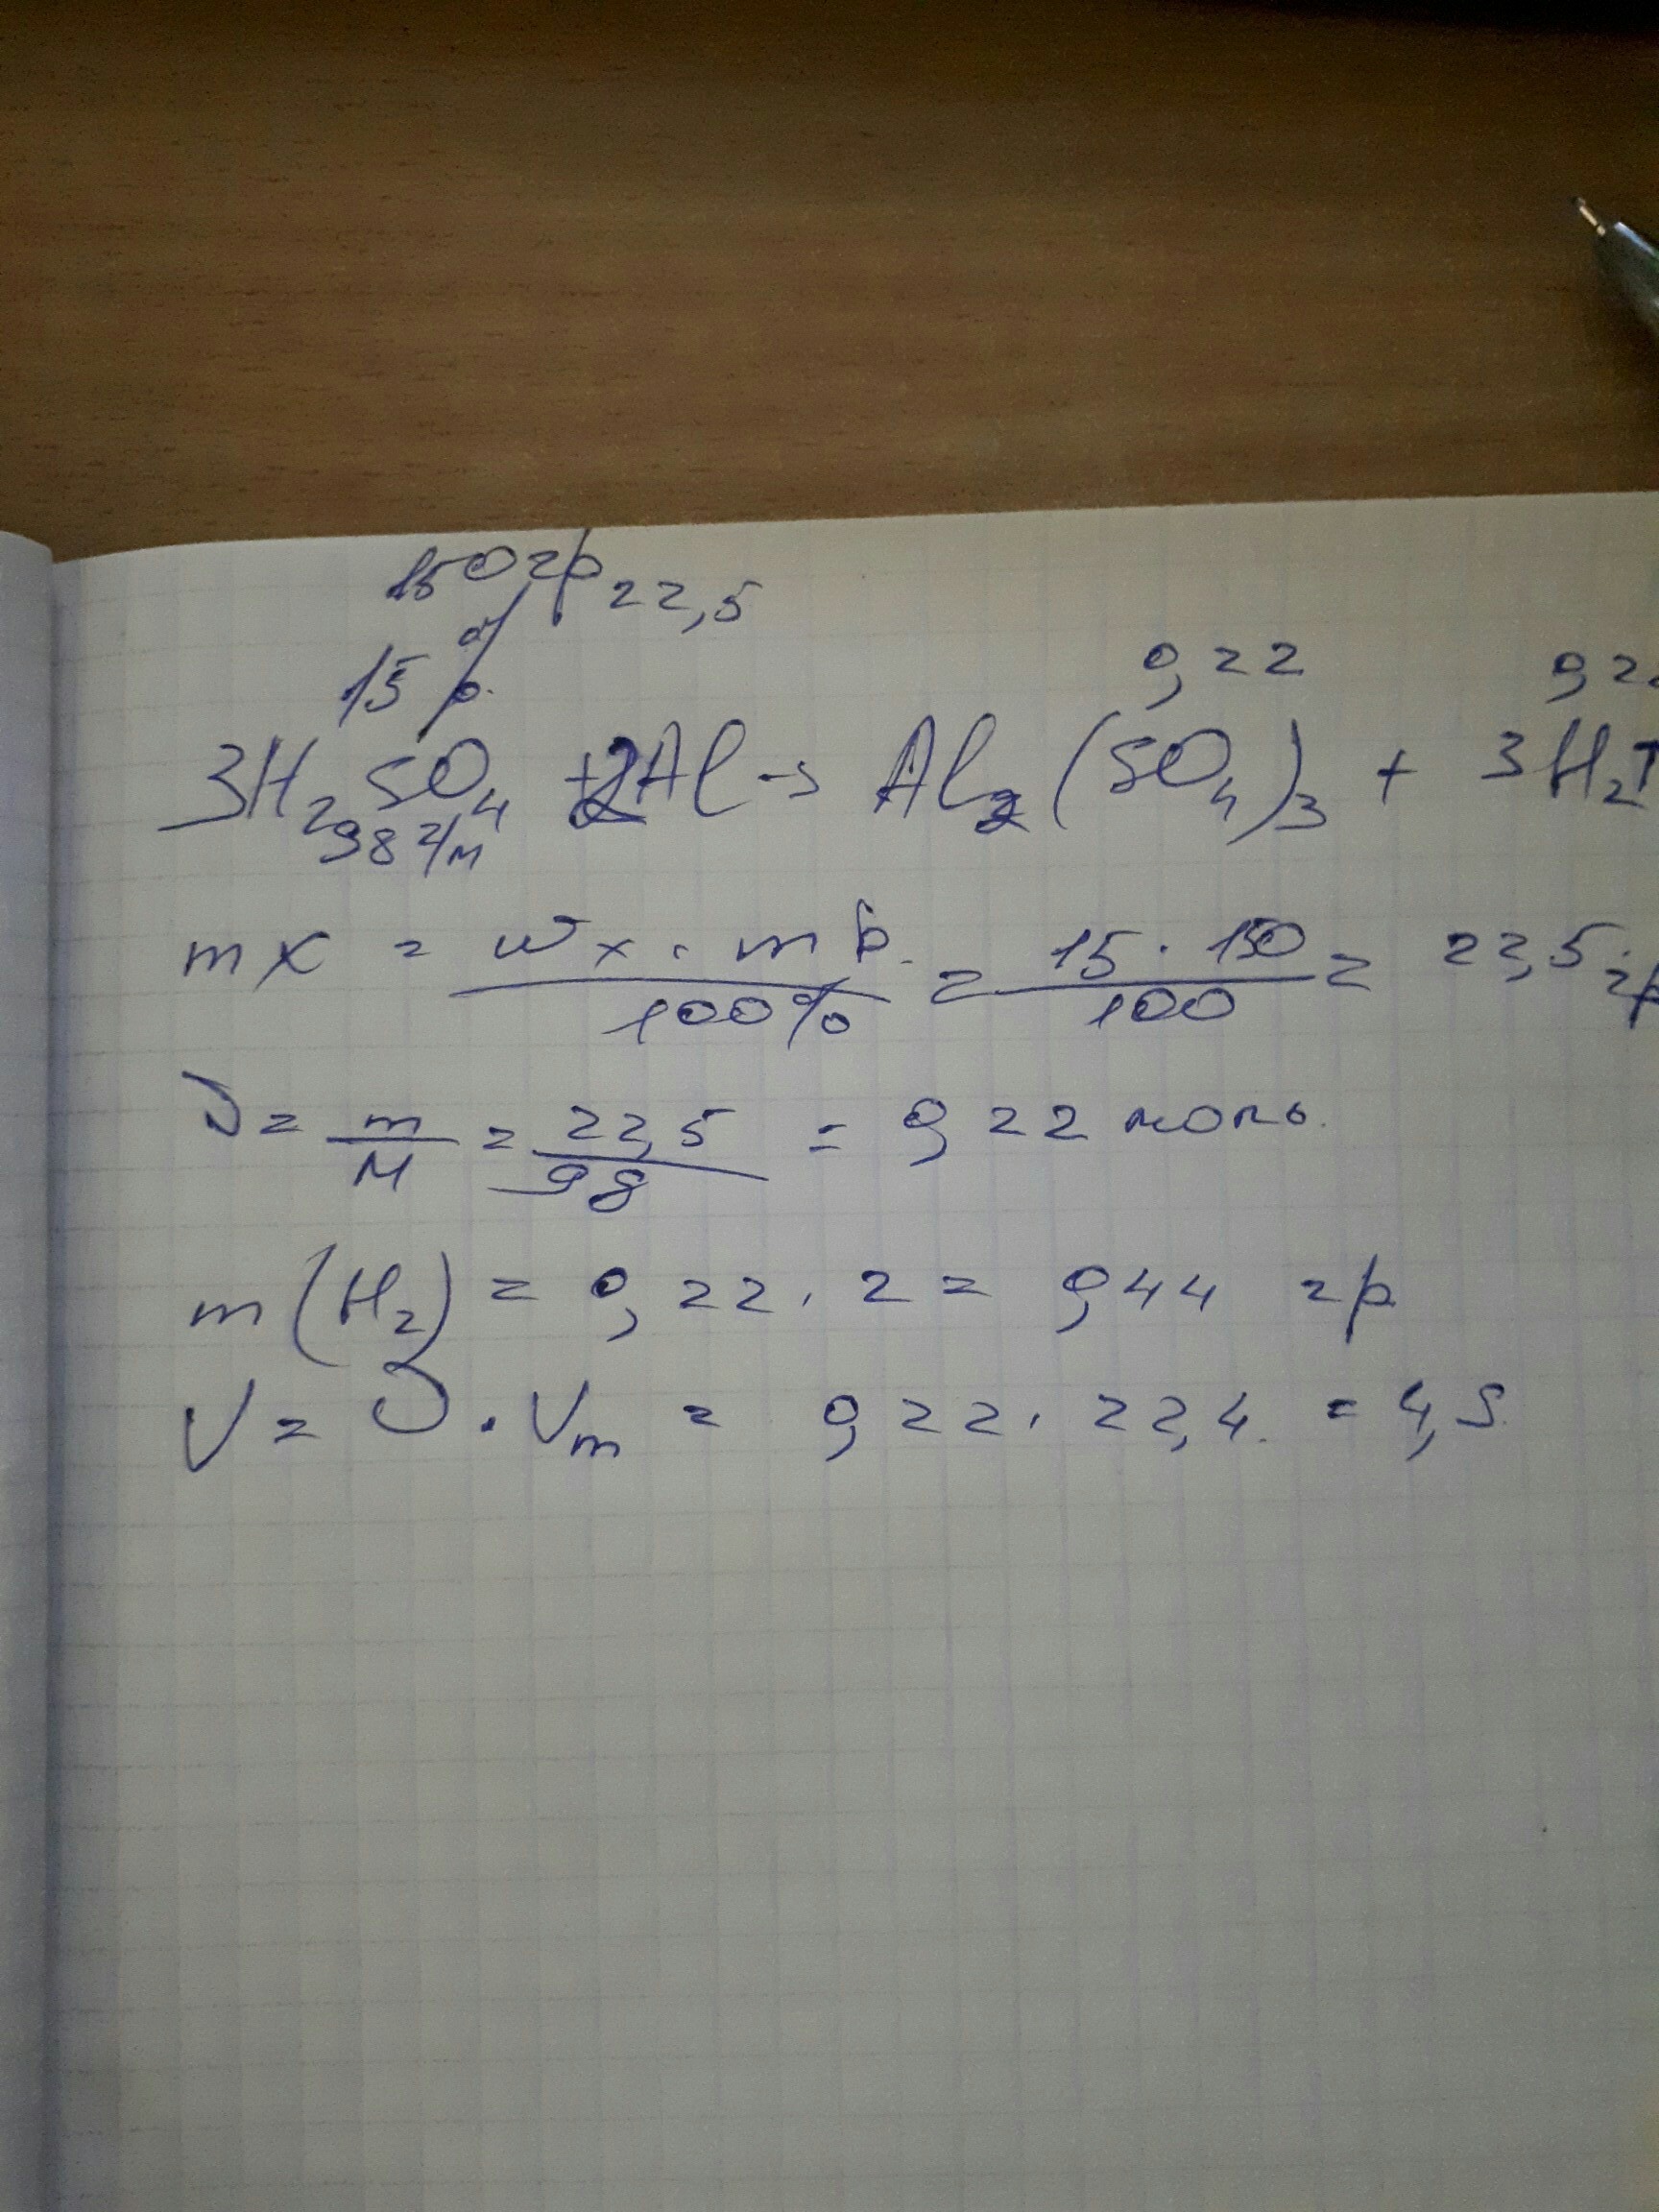 150 гр 22,5
15 %
0,22 0,22
3H₂SO₄ + 2Al → Al₂(SO₄)₃ + 3H₂↑
98 г/м
mx = wx · mв / 100% = 15 · 150 / 100 = 22,5 гр
ν = m / M = 22,5 / 98 = 0,22 моль.
m(H₂) = 0,22 · 2 = 0,44 гр
V = ν · Vm = 0,22 · 22,4 = 4,9